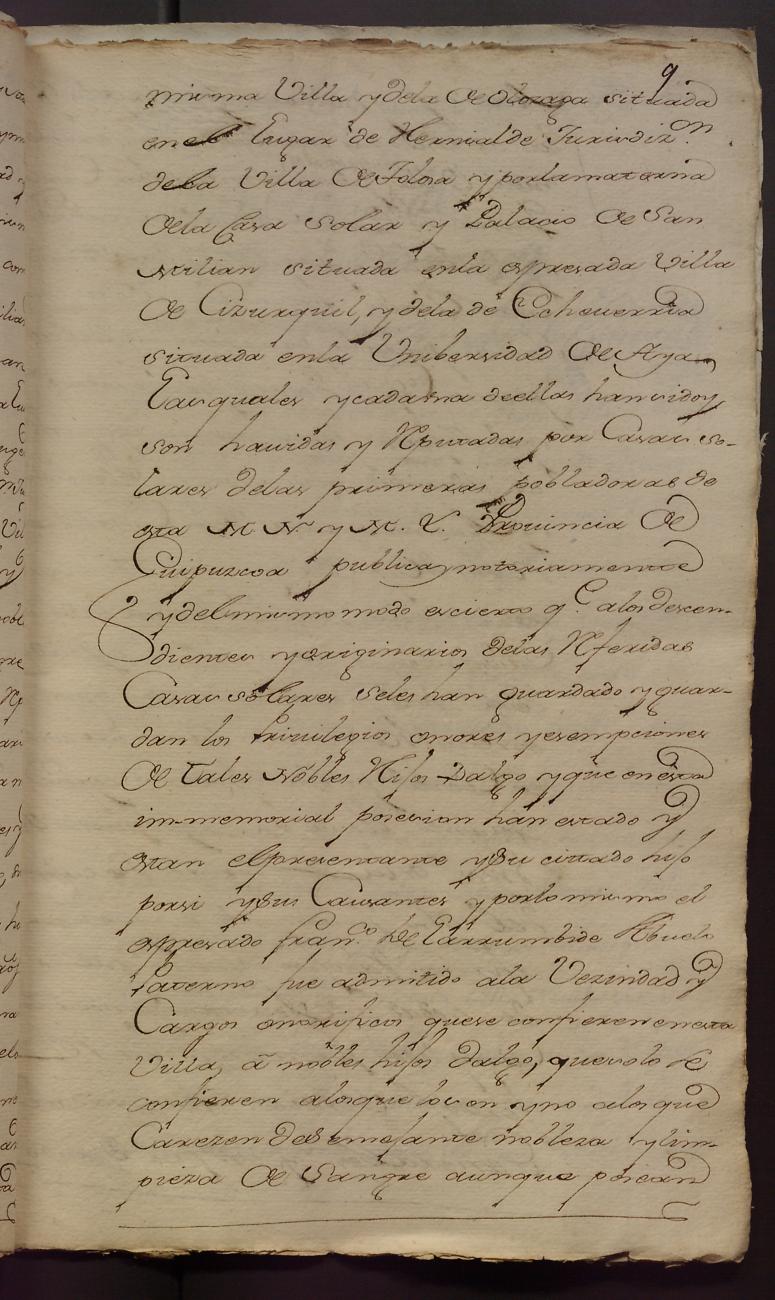 9
misma Villa y dela de Olozaga situada
en el Lugar de Hernialde Jurisdiz.on
dela Villa de Tolosa y por la materna
dela Casa Solar y Palacio de San
Milian situada en la espresada Villa
de Cizurquil, y dela de Echeverria
situada en la Unibersidad de Aya
Las quales y cada una de ellas han sido y
son havidas y Reputadas por Casas so-
lares delas primeras pobladoras de
esta M. N. y M. L. Provincia de
Guipuzcoa publica y notoriamente
y del mismo modo es cierto q.e alos descen-
dientes y originarios delas Referidas
Casas solares seles han guardado y guar-
dan los Privilegios onores y esempciones
de tales Nobles Hijos Dalgo y que en esta
im-memorial posesion han estado y
estan el presentante y su cittado hijo
por si y sus Causantes y por lo mismo el
espresado Fran.co de Larrumbide Abuelo
Paterno fue admitido ala Vezindad y
Cargos onorificos que se confieren en esta
Villa, a nobles hijos dalgo, que solo se
confieren alos que lo son y no alos que
Carezen de semejante nobleza y lim-
pieza de Sangre aunque posean